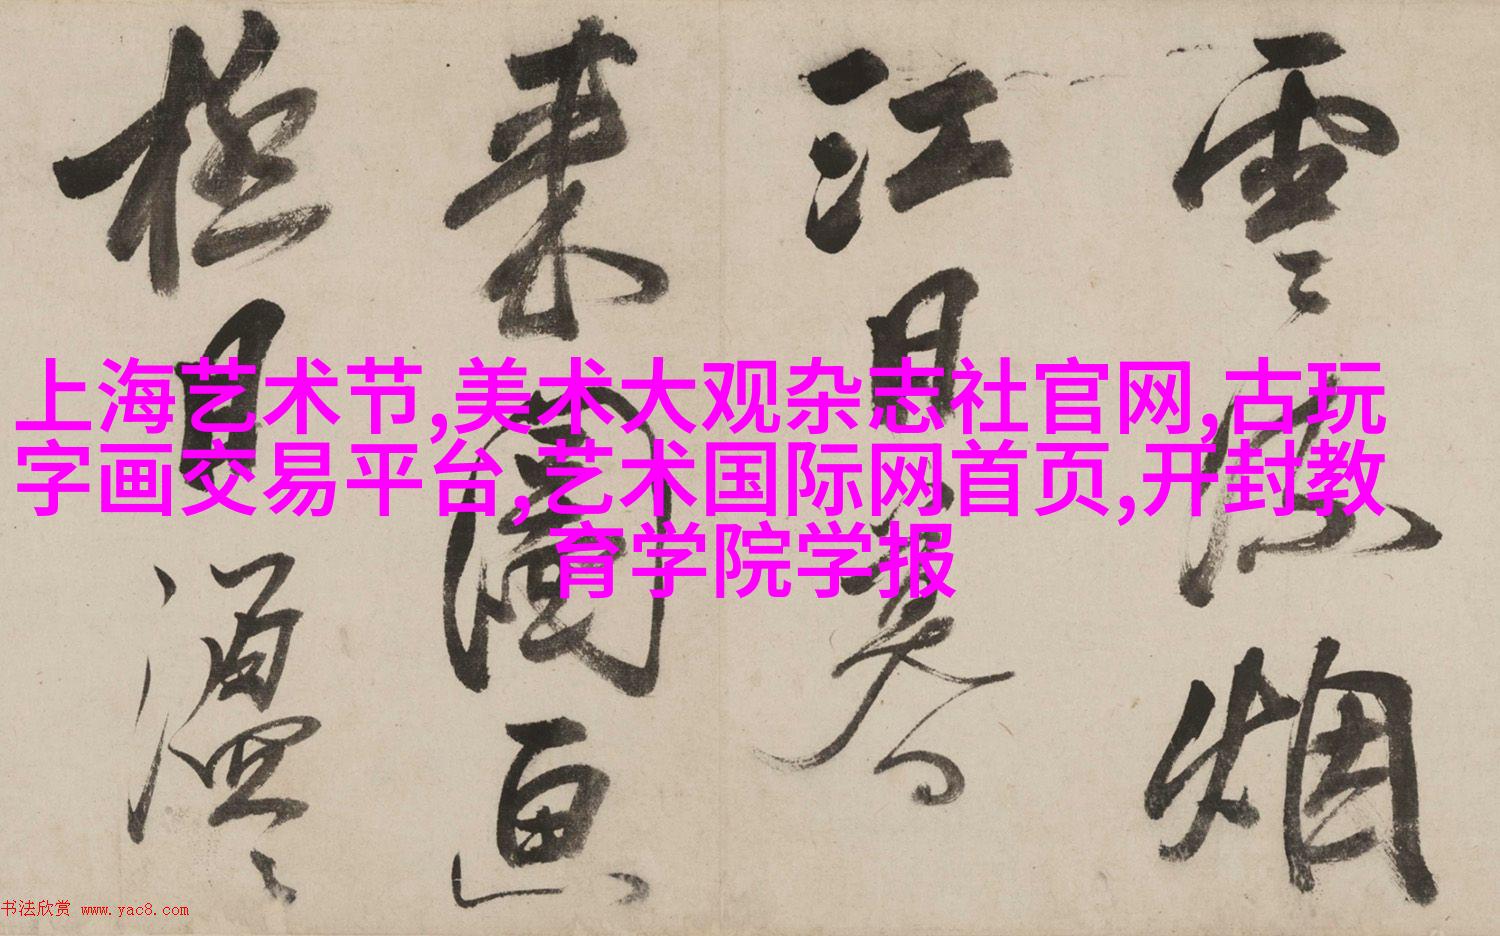 雲〻烟
江
来画
極目
上海艺术节,美术大观杂志社官网,古玩
字画交易平台,艺术国际网首页,开封教
育学院学报
书法欣赏 www.yac8.com